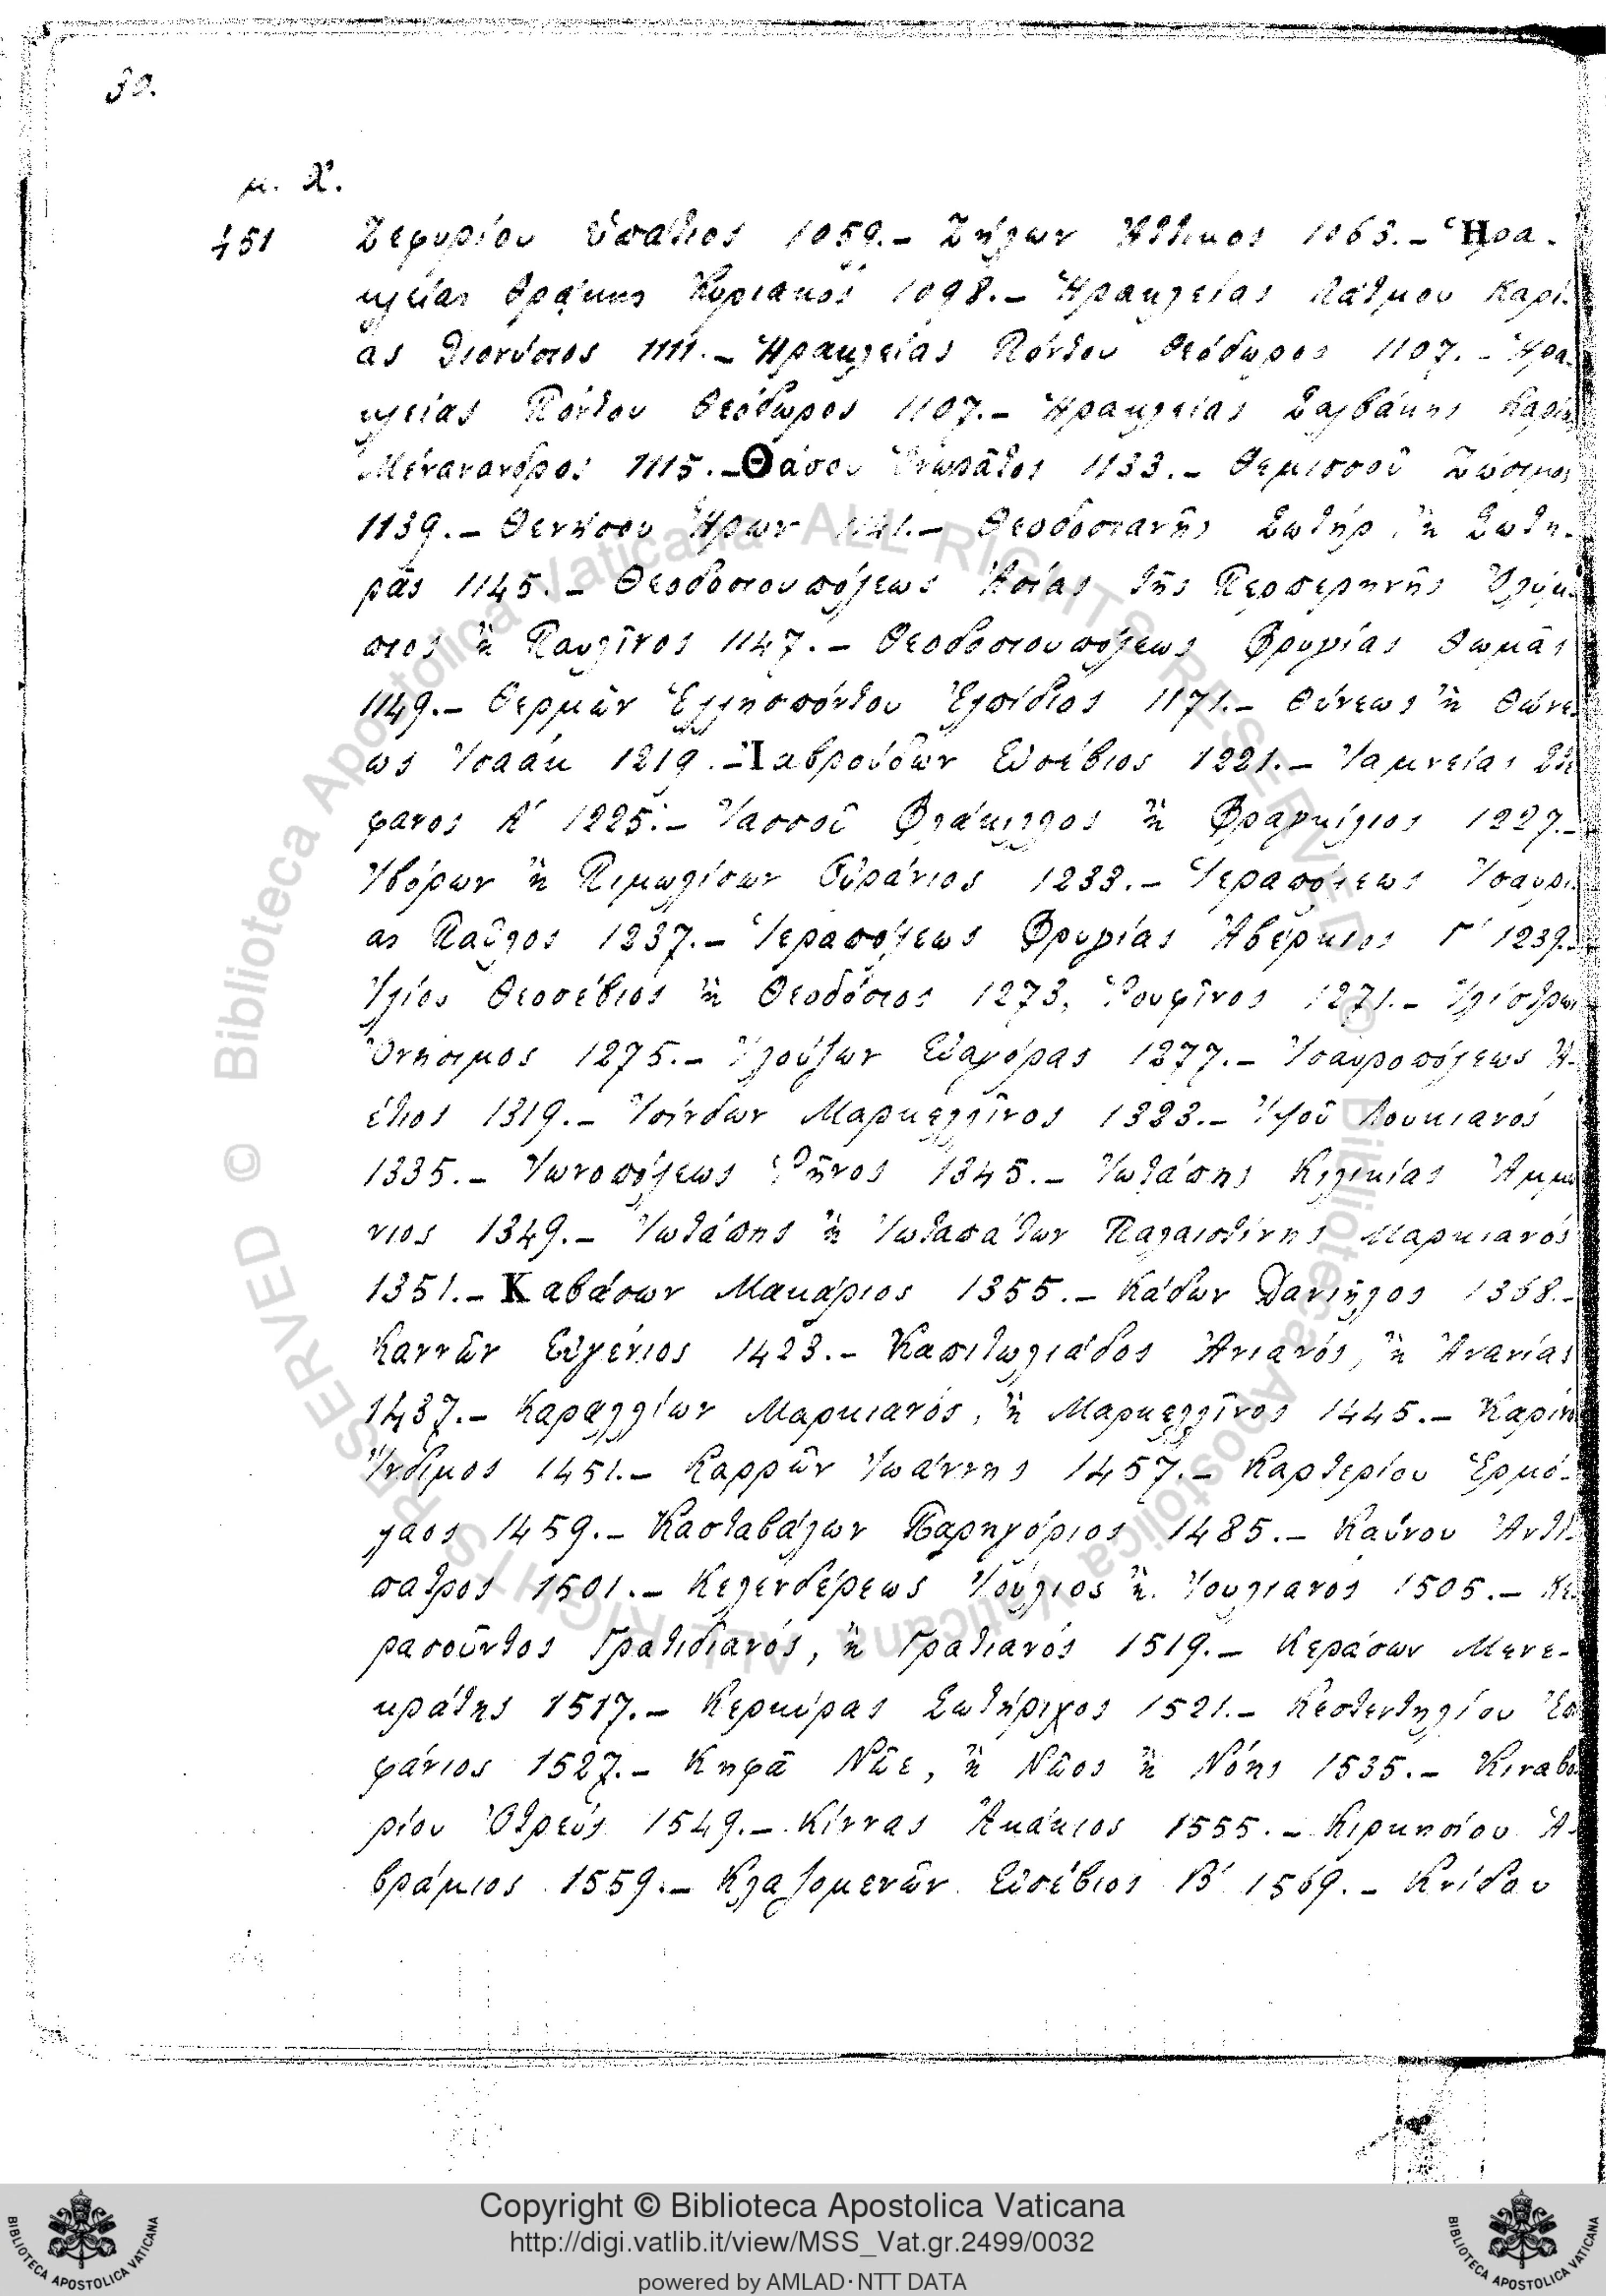 30.
μ. Χ.
451 Ζεφυρίου Ὑπάτιος 1059.– Ζήλων Ἄττικος 1063.– Ἡρα-
κλείας Θράκης Κυριακός 1098.– Ἡρακλείας Λάτμου Καρί-
ας Διονύσιος 1111.– Ἡρακλείας Πόντου Θεόδωρος 1107.– Ἡρα-
κλείας Πόντου Θεόδωρος 1107.– Ἡρακλείας Σαλβάκης Καρία
Μένανανδρος 1115.– Θάσου Ὁνωρᾶτος 1133.– Θεμισσοῦ Ζώσιμος
1139.– Θεννήσου Ἥρων 1141.– Θεοδοσιανῆς Σωτήρ, ἢ Σωτη-
ρᾶς 1145.– Θεοδοσιουπόλεως Ἀσίας τῆς Περπερηνῆς Ὀλύμ-
πιος ἢ Παυλῖνος 1147.– Θεοδοσιουπόλεως Φρυγίας Θωμᾶς
1149.– Θερμῶν Ἑλλησπόντου Ἐλπίδιος 1171.– Θύνεως ἢ Θώνε-
ως Ἰσαάκ 1219.– Ἰαβρούδων Εὐσέβιος 1221.– Ἰαμνείας Στέ
φανος Α' 1225.– Ἰασσοῦ Φλάκιλλος ἢ Φραγκίλιος 1227.–
Ἰβόρων ἢ Πιμωλίσων Οὐράνιος 1233.– Ἱεραπόλεως Ἰσαυρί-
ας Παῦλος 1237.– Ἱεραπόλεως Φρυγίας Ἀβέρκιος Γ' 1239.–
Ἰλίου Θεοσέβιος ἢ Θεοδόσιος 1273, Ῥουφῖνος 1271.– Ἰλίστρων
Ὀνήσιμος 1275.– Ἰλούζων Εὐαγόρας 1277.– Ἰσαυροπόλεως Ἀ-
έτιος 1319.– Ἰσίνδων Μαρκελλῖνος 1323.– Ἰψοῦ Λουκιανός
1335.– Ἰωνοπόλεως Ῥῆνος 1345.– Ἰωτάπης Κιλικίας Ἀμμώ
νιος 1349.– Ἰωτάπης ἢ Ἰωταπάτων Παλαιστίνης Μαρκιανός
1351.– Καβάσων Μακάριος 1355.– Κάδων Δανιῆλος 1368.–
Καννῶν Εὐγένιος 1423.– Καπιτωλιάδος Ἀνιανός, ἢ Ἀνανίας
1437.– Καραλλίων Μαρκιανός, ἢ Μαρκελλῖνος 1445.– Καρίνη
Ἔνδιμος 1451.– Καρρῶν Ἰωάννης 1457.– Καρτερίου Ἑρμό-
λαος 1459.– Κασταβάλων Παρηγόριος 1485.– Καύνου Ἀντί-
πατρος 1501.– Κελενδέρεως Ἰούλιος ἢ Ἰουλιανός 1505.– Κε
ρασοῦντος Γρατιδιανός, ἢ Γρατιανός 1519.– Κεράσων Μενε-
κράτης 1517.– Κερκύρας Σωτήριχος 1521.– Κεστεντηλίου Ἐπι
φάνιος 1527.– Κηφᾶ Νῶε, ἢ Νῶος ἢ Νόης 1535.– Κιναβο
ρίου Ὀτρεύς 1549.– Κίννας Ἀκάκιος 1555.– Κιρκησίου Ἀ-
βράμιος 1559.– Κλαζομενῶν Εὐσέβιος Β' 1569.– Κνίδου
Copyright © Biblioteca Apostolica Vaticana
http://digi.vatlib.it/view/MSS_Vat.gr.2499/0032
powered by AMLAD·NTT DATA